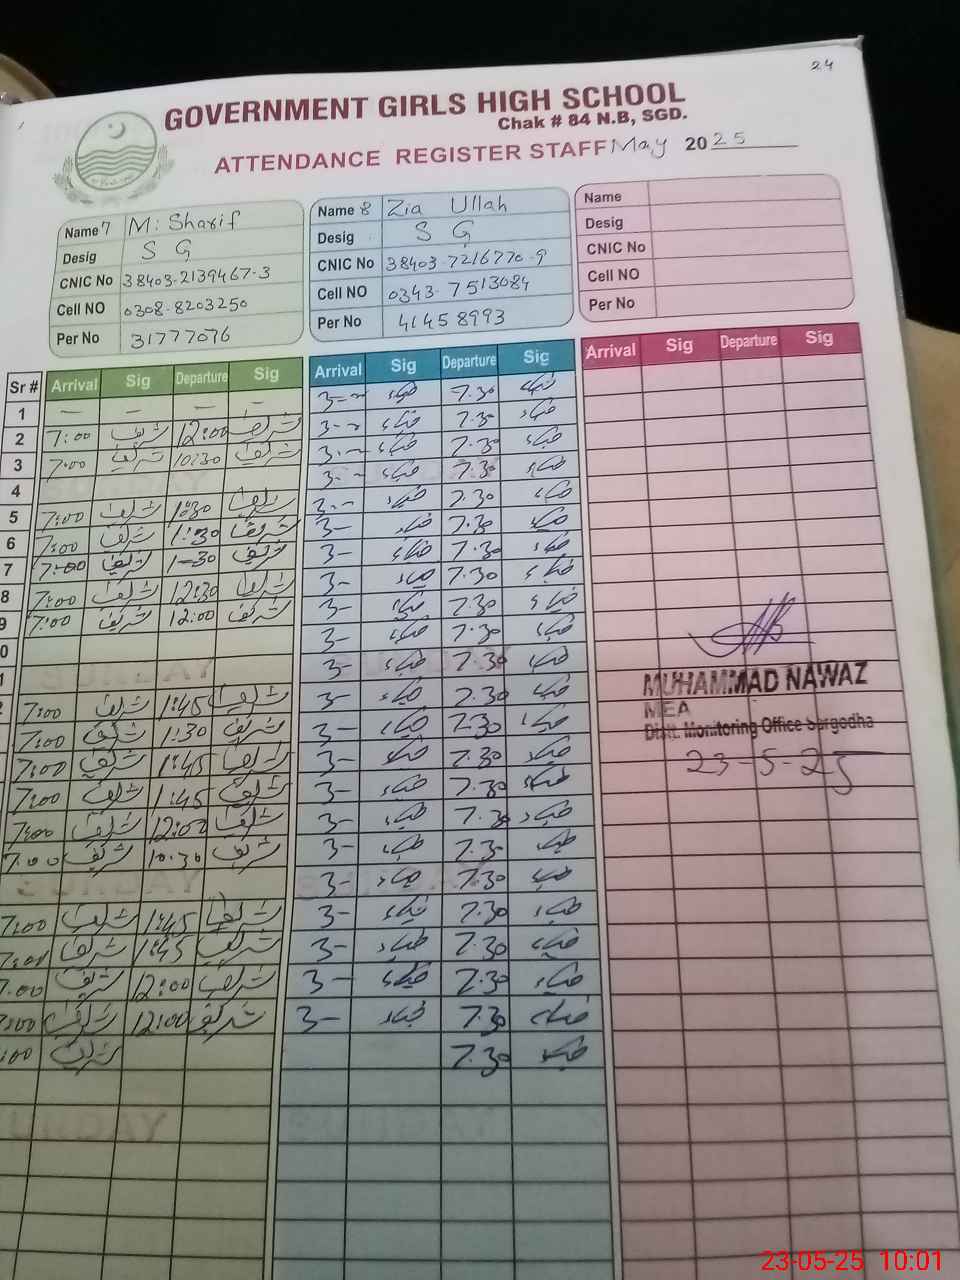 24
GOVERNMENT GIRLS HIGH SCHOOL
Chak # 84 N.B, SGD.
ATTENDANCE REGISTER STAFF May 2025
Name 7 M: Sharif
Desig S G
CNIC No 38403-2139467-3
Cell NO 0308-8203250
Per No 31777076
Name 8 Zia Ullah
Desig S G
CNIC No 38403-7216770-9
Cell NO 0343-7513084
Per No 41458993
Name
Desig
CNIC No
Cell NO
Per No
Sr # Arrival Sig Departure Sig Arrival Sig Departure Sig Arrival Sig Departure Sig
1 – – – – 3-- ضیاء 7.30 ضیاء
2 7:00 شریف 12:00 شریف 3-- ضیاء 7.30 ضیاء
3 7:00 شریف 10:30 شریف 3-- ضیاء 7.30 ضیاء
4 3-- ضیاء 7.30 ضیاء
5 7:00 شریف 1:30 شریف 3-- ضیاء 7.30 ضیاء
6 7:00 شریف 1:30 شریف 3- ضیاء 7.30 ضیاء
7 7:00 شریف 1-30 شریف 3- ضیاء 7.30 ضیاء
8 7:00 شریف 12:30 شریف 3- ضیاء 7.30 ضیاء
9 7:00 شریف 12:00 شریف 3- ضیاء 7.30 ضیاء
0 3- ضیاء 7.30 ضیاء
1 3- ضیاء 7.30 ضیاء
2 7:00 شریف 1:45 شریف 3- ضیاء 7.30 ضیاء
7:00 شریف 1:30 شریف 3- ضیاء 7.30 ضیاء
7:00 شریف 1:45 شریف 3- ضیاء 7.30 ضیاء
7:00 شریف 1:45 شریف 3- ضیاء 7.30 ضیاء
7:00 شریف 12:00 شریف 3- ضیاء 7.30 ضیاء
7:00 شریف 10:30 شریف 3- ضیاء 7.30 ضیاء
3- ضیاء 7.30 ضیاء
7:00 شریف 1:45 شریف 3- ضیاء 7.30 ضیاء
7:00 شریف 1:45 شریف 3- ضیاء 7.30 ضیاء
7:00 شریف 12:00 شریف 3- ضیاء 7.30 ضیاء
7:00 شریف 12:00 شریف 3- ضیاء 7.30 ضیاء
:00 شریف 7.30 ضیاء
MUHAMMAD NAWAZ
MEA
Distt. Monitoring Office Sargodha
23-5-25
23-05-25 10:01